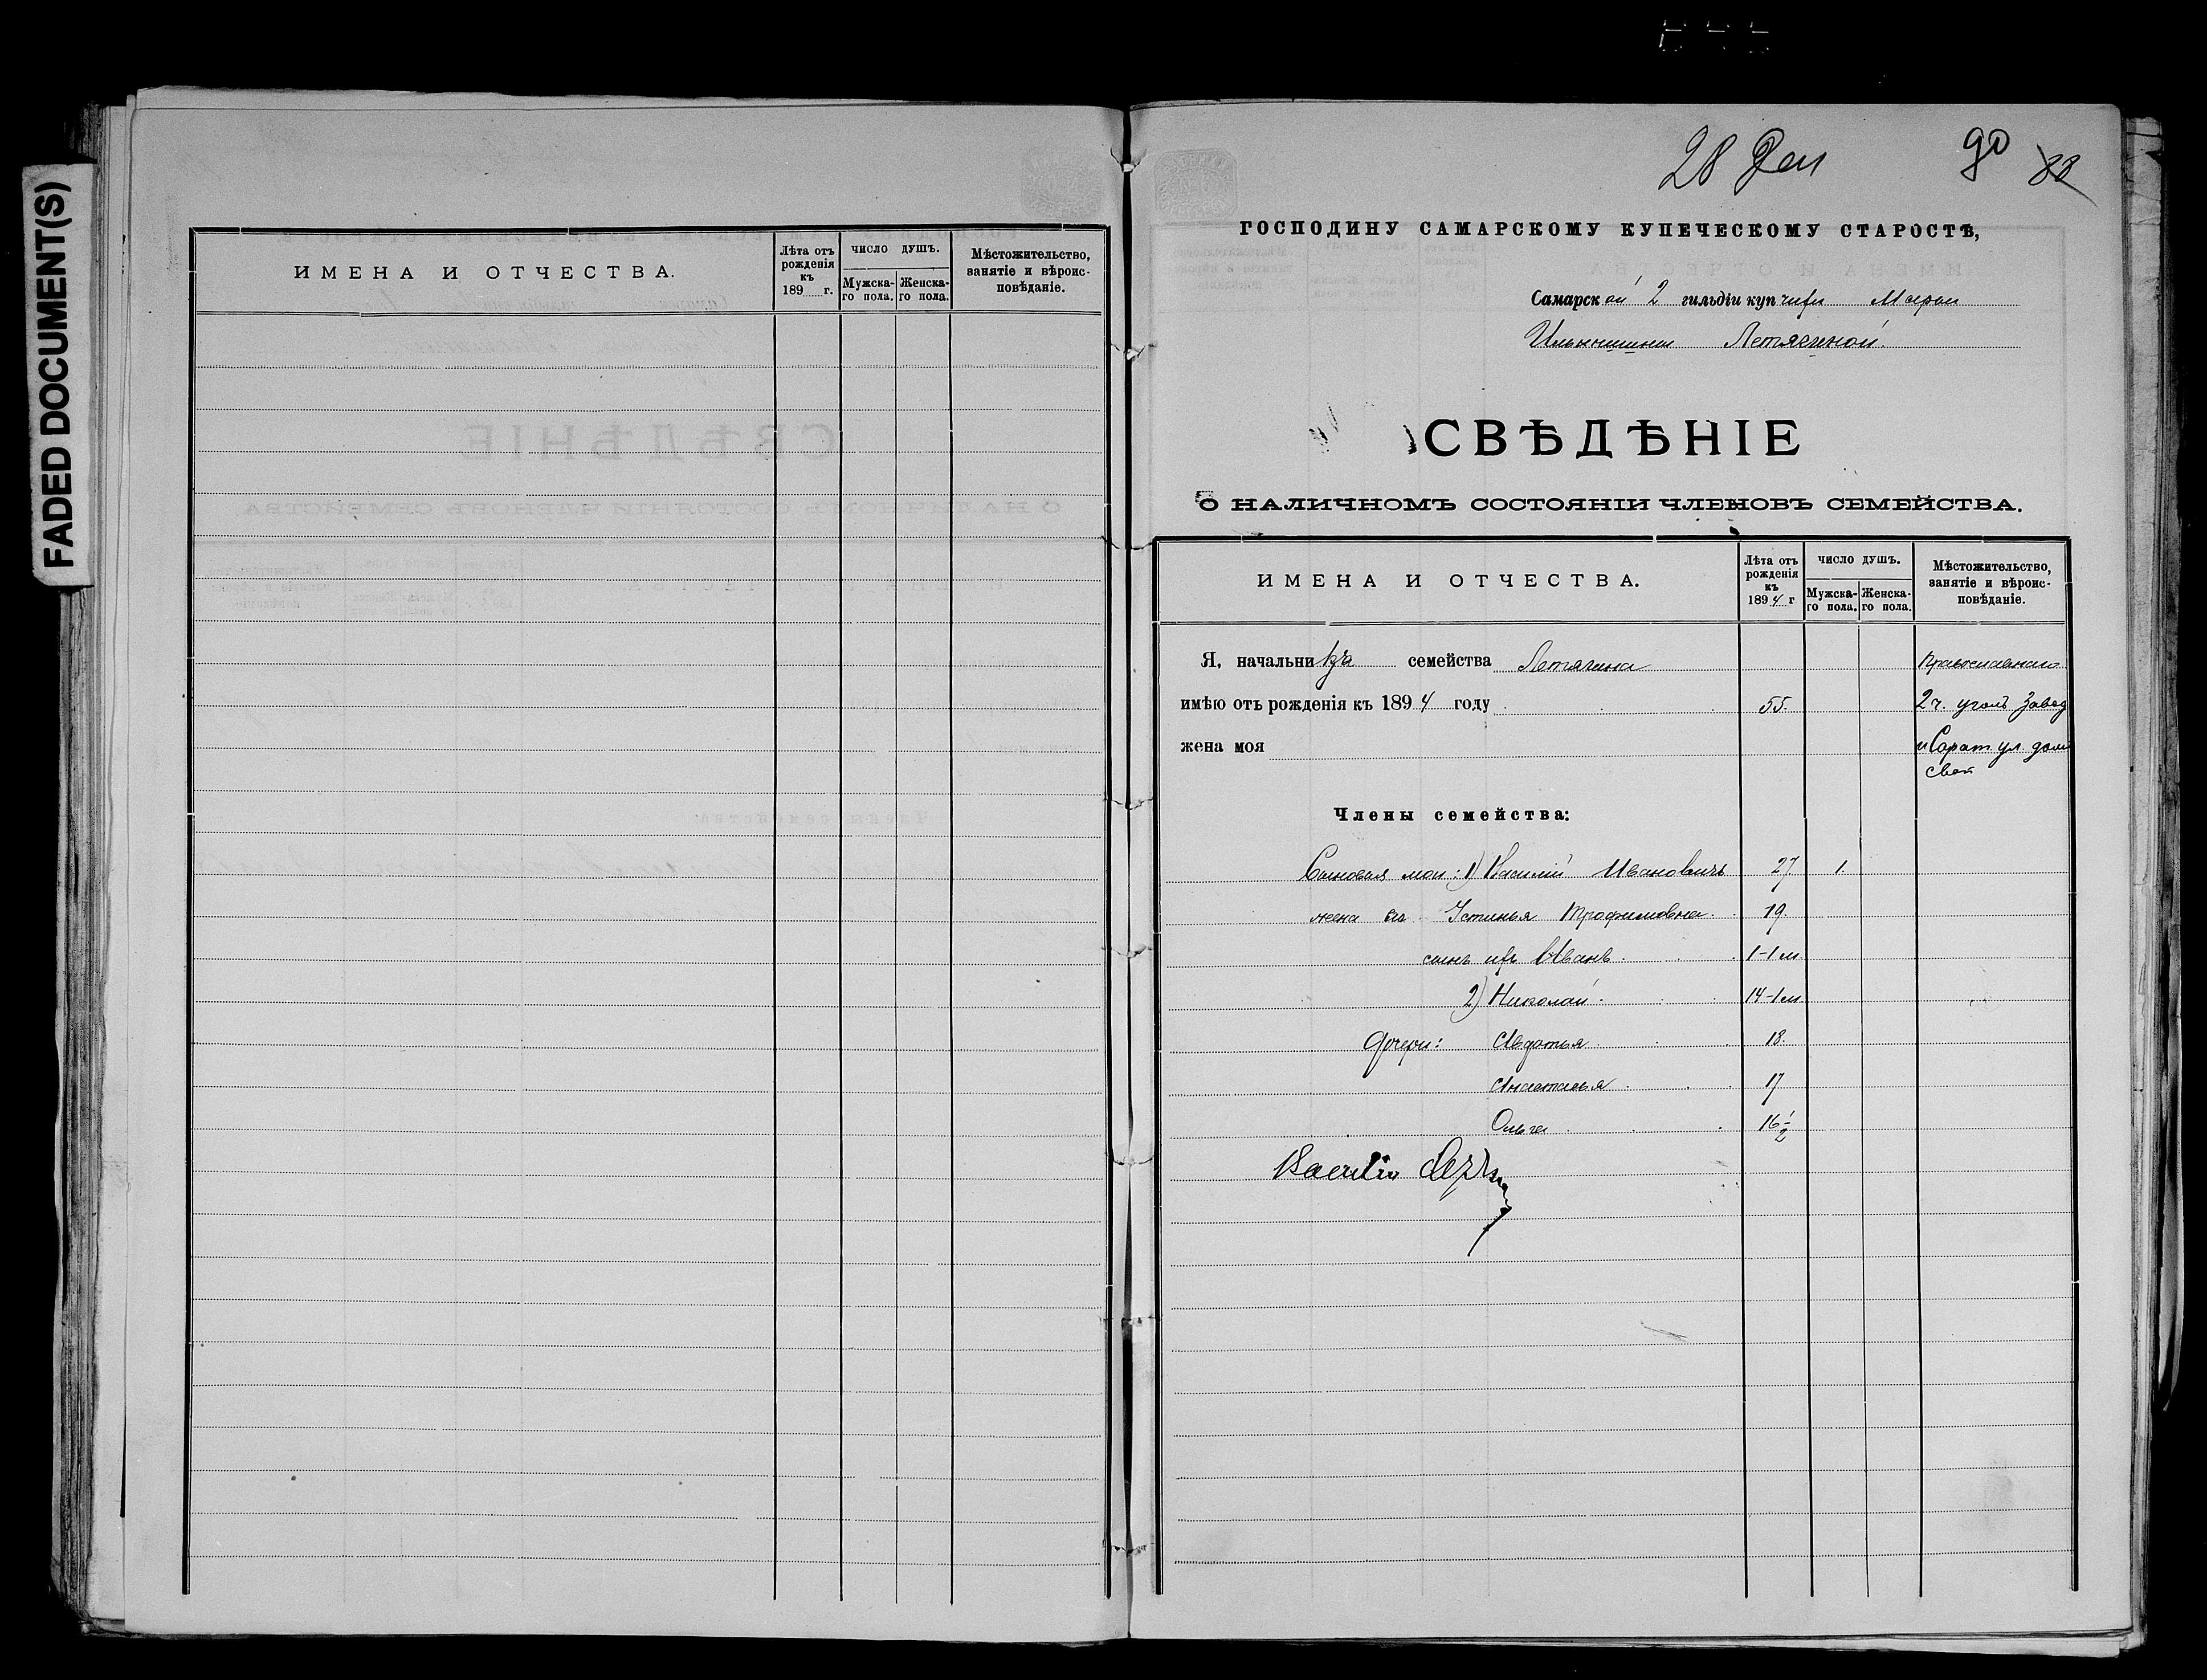 FADED DOCUMENT(S)
ИМЕНА И ОТЧЕСТВА.
Лѣта отъ рожденія къ 189 г.
ЧИСЛО ДУШЪ.
Мужска-го пола.
Женска-го пола.
Мѣстожительство, занятіе и вѣроис-повѣданіе.
28 Дек 90 88
ГОСПОДИНУ САМАРСКОМУ КУПЕЧЕСКОМУ СТАРОСТѢ,
Самарской 2 гильдіи купчихи Марьи
Ильинишни Летягиной.
СВѢДѢНІЕ
О НАЛИЧНОМЪ СОСТОЯНІИ ЧЛЕНОВЪ СЕМЕЙСТВА.
ИМЕНА И ОТЧЕСТВА.
Лѣта отъ рожденія къ 1894 г
ЧИСЛО ДУШЪ.
Мужска-го пола.
Женска-го пола.
Мѣстожительство, занятіе и вѣроис-повѣданіе.
Я, начальни семейства Летягина Православнаго
имѣю отъ рожденія къ 1894 году 55. 2 ч. уголъ Завод
жена моя и Сарат. ул. домъ
свой
Члены семейства:
Сыновья мои: 1) Василій Ивановичъ 27 1.
жена его Устинья Трофимовна 19.
сынъ ихъ Иванъ 1-1 м
2) Николай 14-1 м
Дочери: Авдотья 18.
Анастасья 17
Ольга 16 1/2